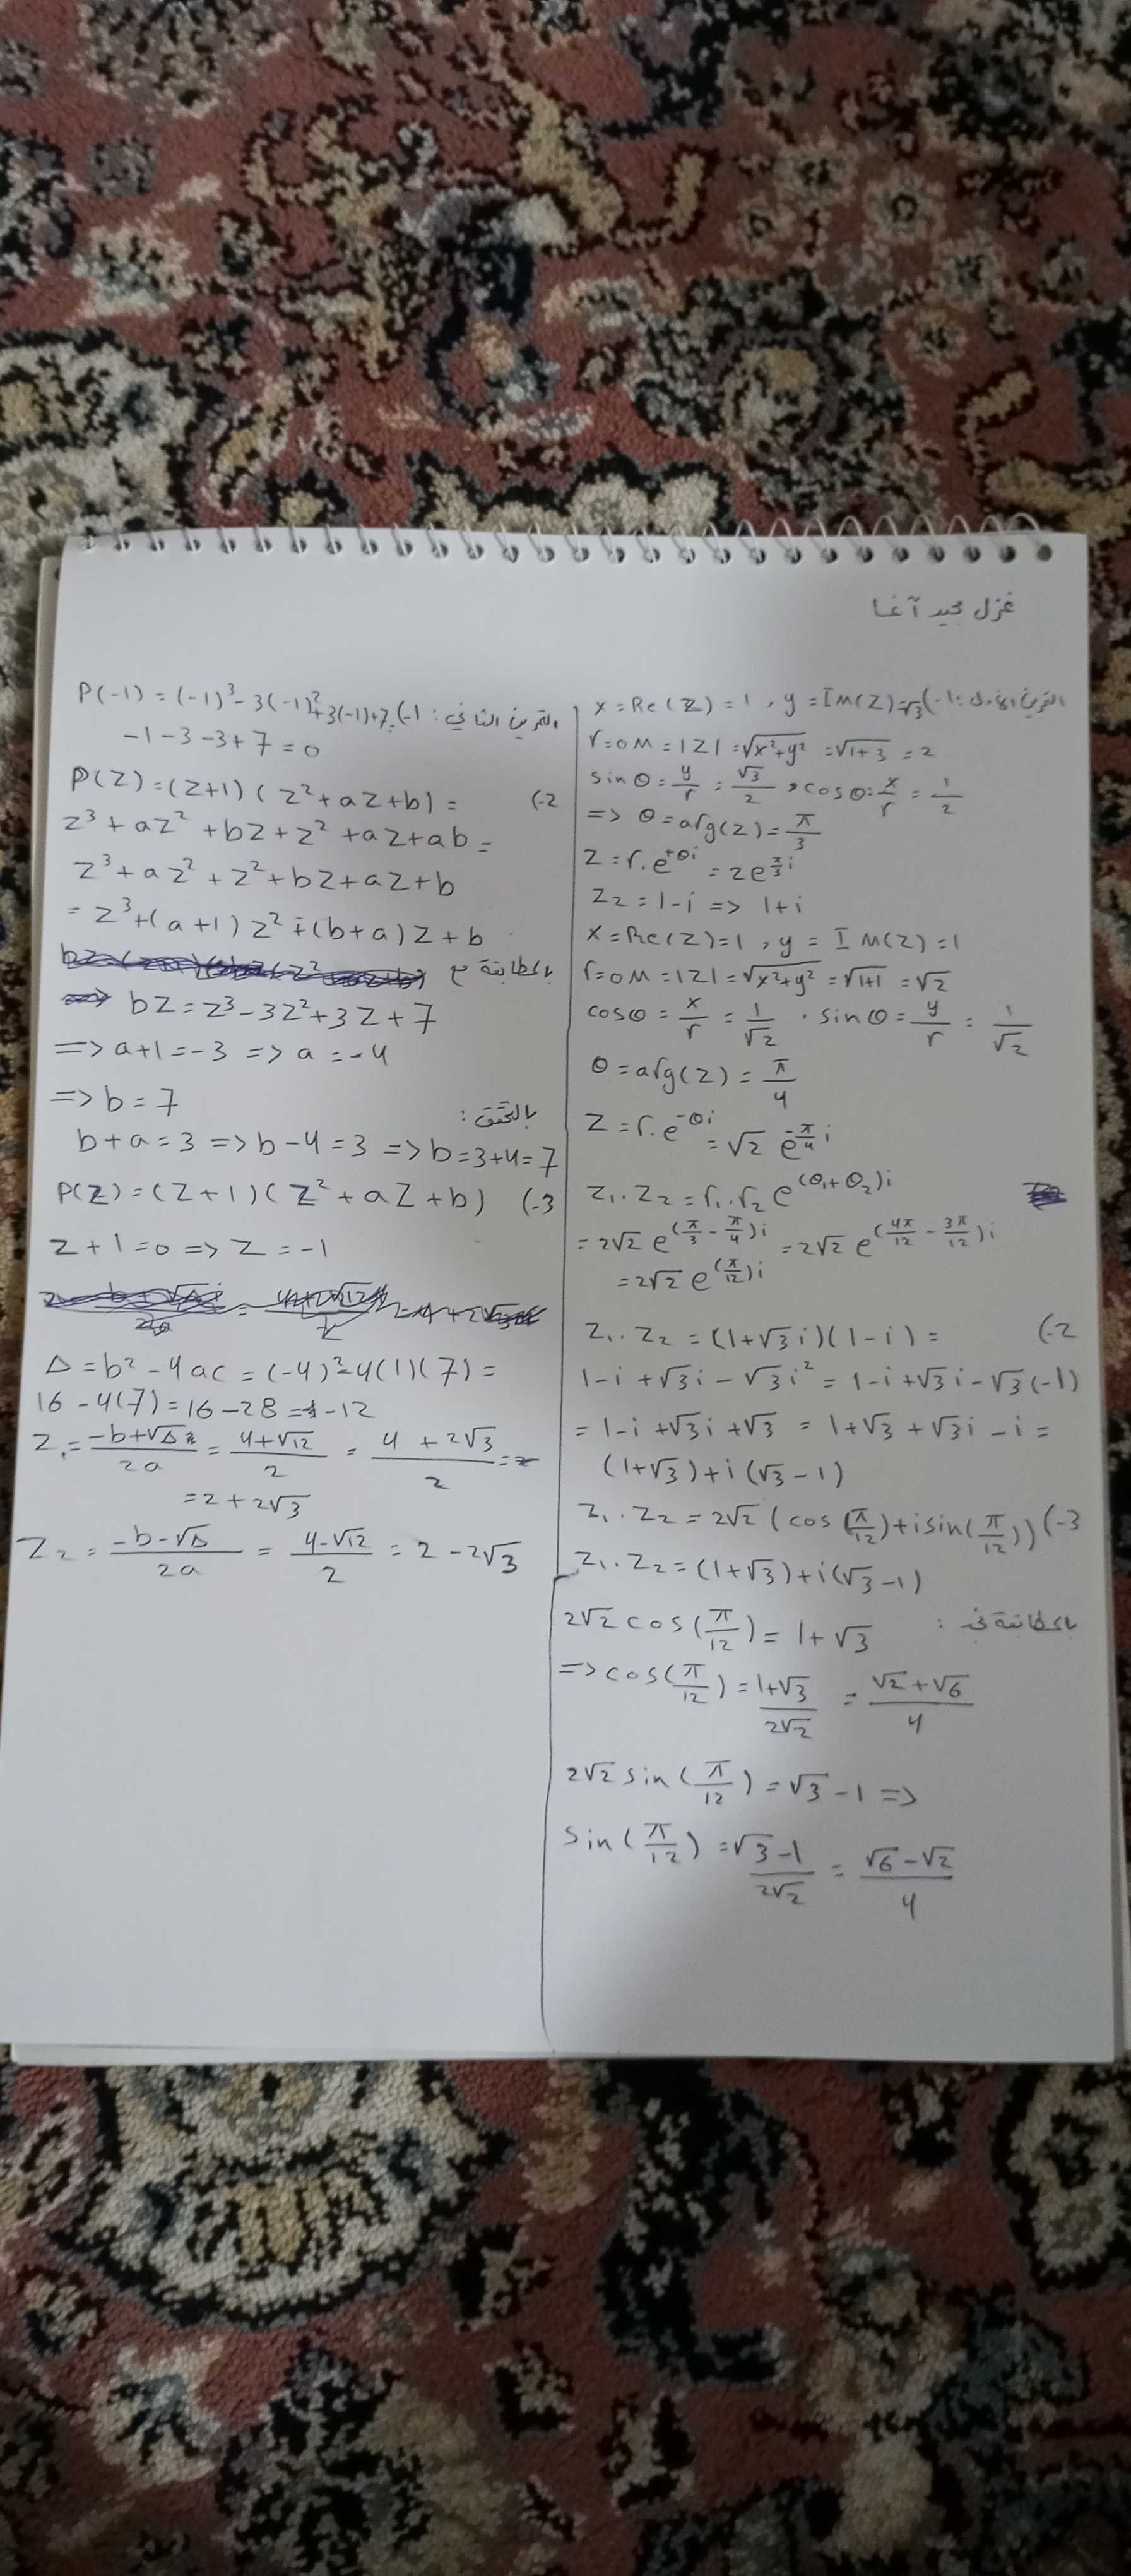 غزل مجيد آغا
التمرين الأول: 1-) x = Re(Z) = 1 , y = Im(Z) = √3
r = OM = |Z| = √x²+y² = √1+3 = 2
sin θ = y/r = √3/2 , cos θ = x/r = 1/2
=> θ = arg(Z) = π/3
Z = r. e^+θi = 2e^π/3 i
Z₂ = 1-i => 1+i
x = Re(Z) = 1 , y = Im(Z) = 1
r = OM = |Z| = √x²+y² = √1+1 = √2
cos θ = x/r = 1/√2 . sin θ = y/r = 1/√2
θ = arg(Z) = π/4
Z = r. e^-θi = √2 e^-π/4 i
Z₁. Z₂ = r₁. r₂ e^(θ₁+θ₂)i
= 2√2 e^(π/3 - π/4)i = 2√2 e^(4π/12 - 3π/12)i
= 2√2 e^(π/12)i
2-) Z₁. Z₂ = (1+√3i)(1-i) =
1-i+√3i-√3i² = 1-i+√3i-√3(-1)
= 1-i+√3i+√3 = 1+√3+√3i-i =
(1+√3)+i(√3-1)
3-) Z₁. Z₂ = 2√2 (cos(π/12)+isin(π/12))
Z₁. Z₂ = (1+√3)+i(√3-1)
بالمطابقة نجد : 2√2 cos(π/12) = 1+√3
=> cos(π/12) = 1+√3/2√2 = √2+√6/4
2√2 sin(π/12) = √3-1 =>
sin(π/12) = √3-1/2√2 = √6-√2/4
التمرين الثاني: 1-) P(-1) = (-1)³-3(-1)²+3(-1)+7=
-1-3-3+7=0
2-) P(Z) = (Z+1)(Z²+aZ+b) =
Z³+aZ²+bZ+Z²+aZ+ab =
Z³+aZ²+Z²+bZ+aZ+b
= Z³+(a+1)Z²+(b+a)Z+b
بالمطابقة مع
=> bZ = Z³-3Z²+3Z+7
=> a+1 = -3 => a = -4
=> b = 7
بالتحقق :
b+a = 3 => b-4 = 3 => b = 3+4 = 7
3-) P(Z) = (Z+1)(Z²+aZ+b)
Z+1 = 0 => Z = -1
Δ = b²-4ac = (-4)²-4(1)(7) =
16-4(7) = 16-28 = -12
Z₁ = -b+√Δ/2a = 4+√12/2 = 4+2√3/2 =
= 2+2√3
Z₂ = -b-√Δ/2a = 4-√12/2 = 2-2√3